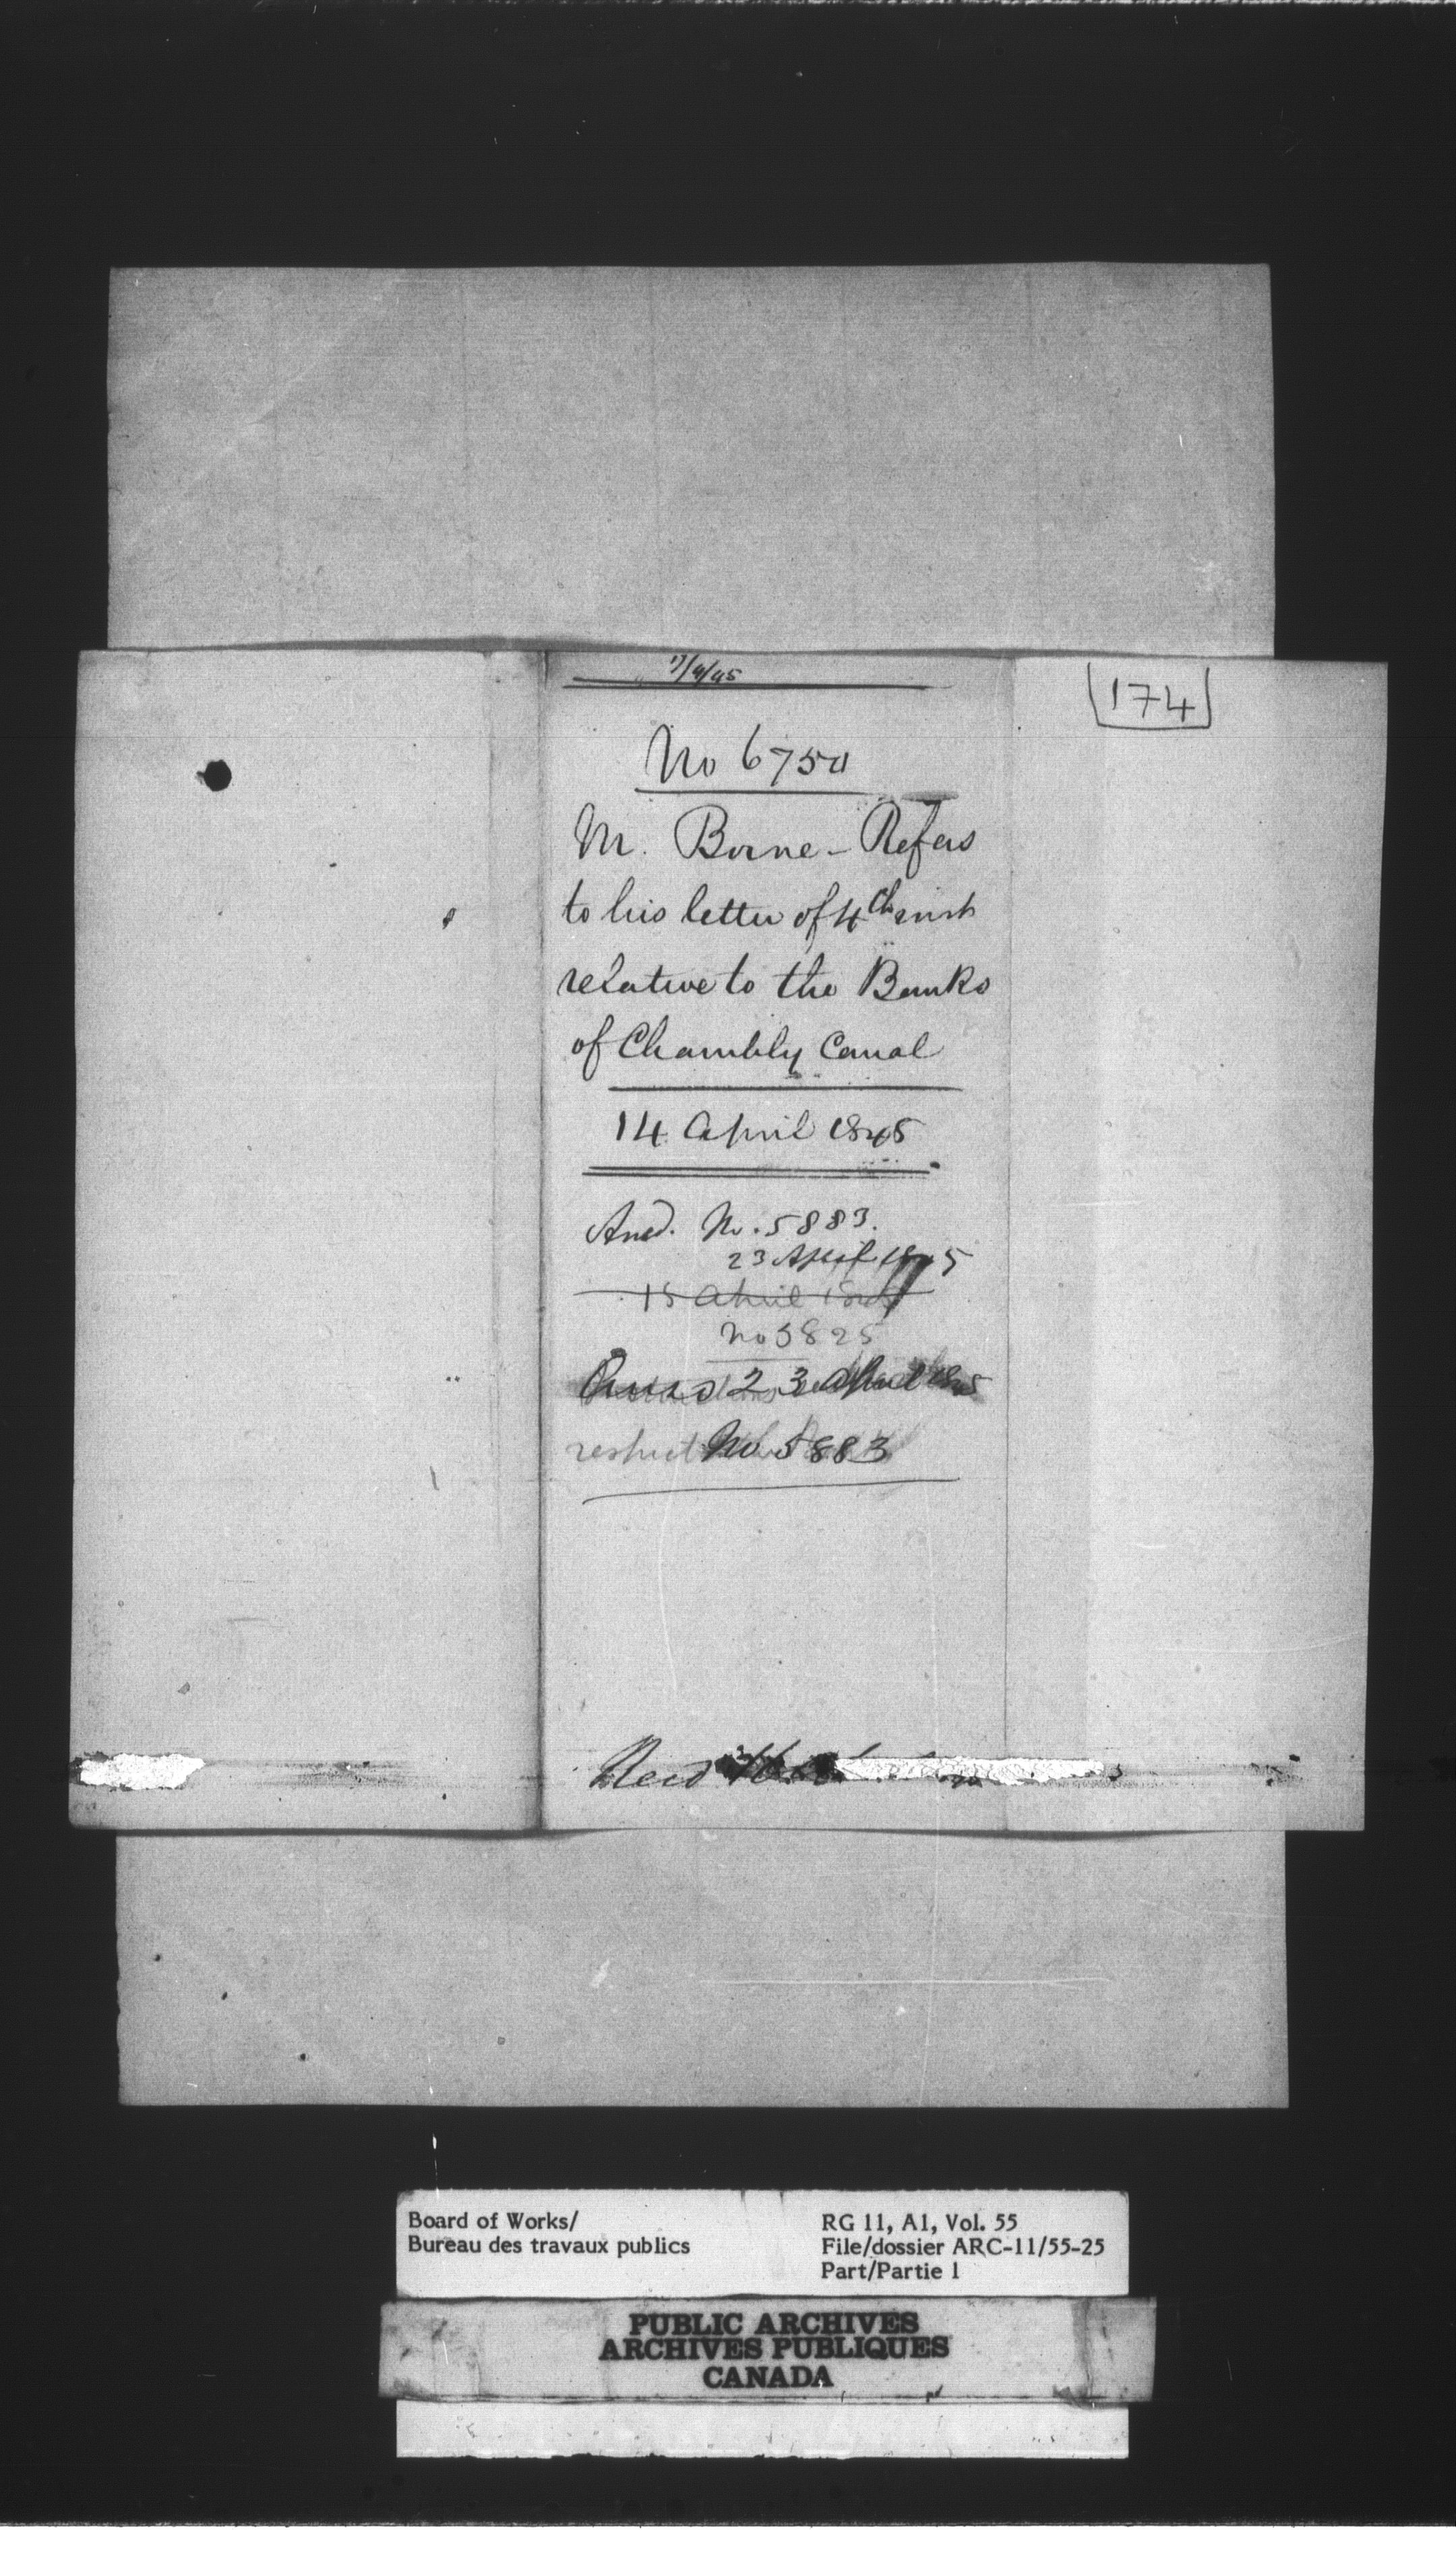 17/4/45
174
No 6750
M. Borne - Refers
to his letter of 4th inst
relative to the Banks
of Chambly Canal
14 April 1845
Ansd. No. 5883.
23 April 1845
15 April 1845
No 5825
Ansd 23 April 1845
respect No 5883
Recd 16
Board of Works/
Bureau des travaux publics
RG 11, A1, Vol. 55
File/dossier ARC-11/55-25
Part/Partie 1
PUBLIC ARCHIVES
ARCHIVES PUBLIQUES
CANADA